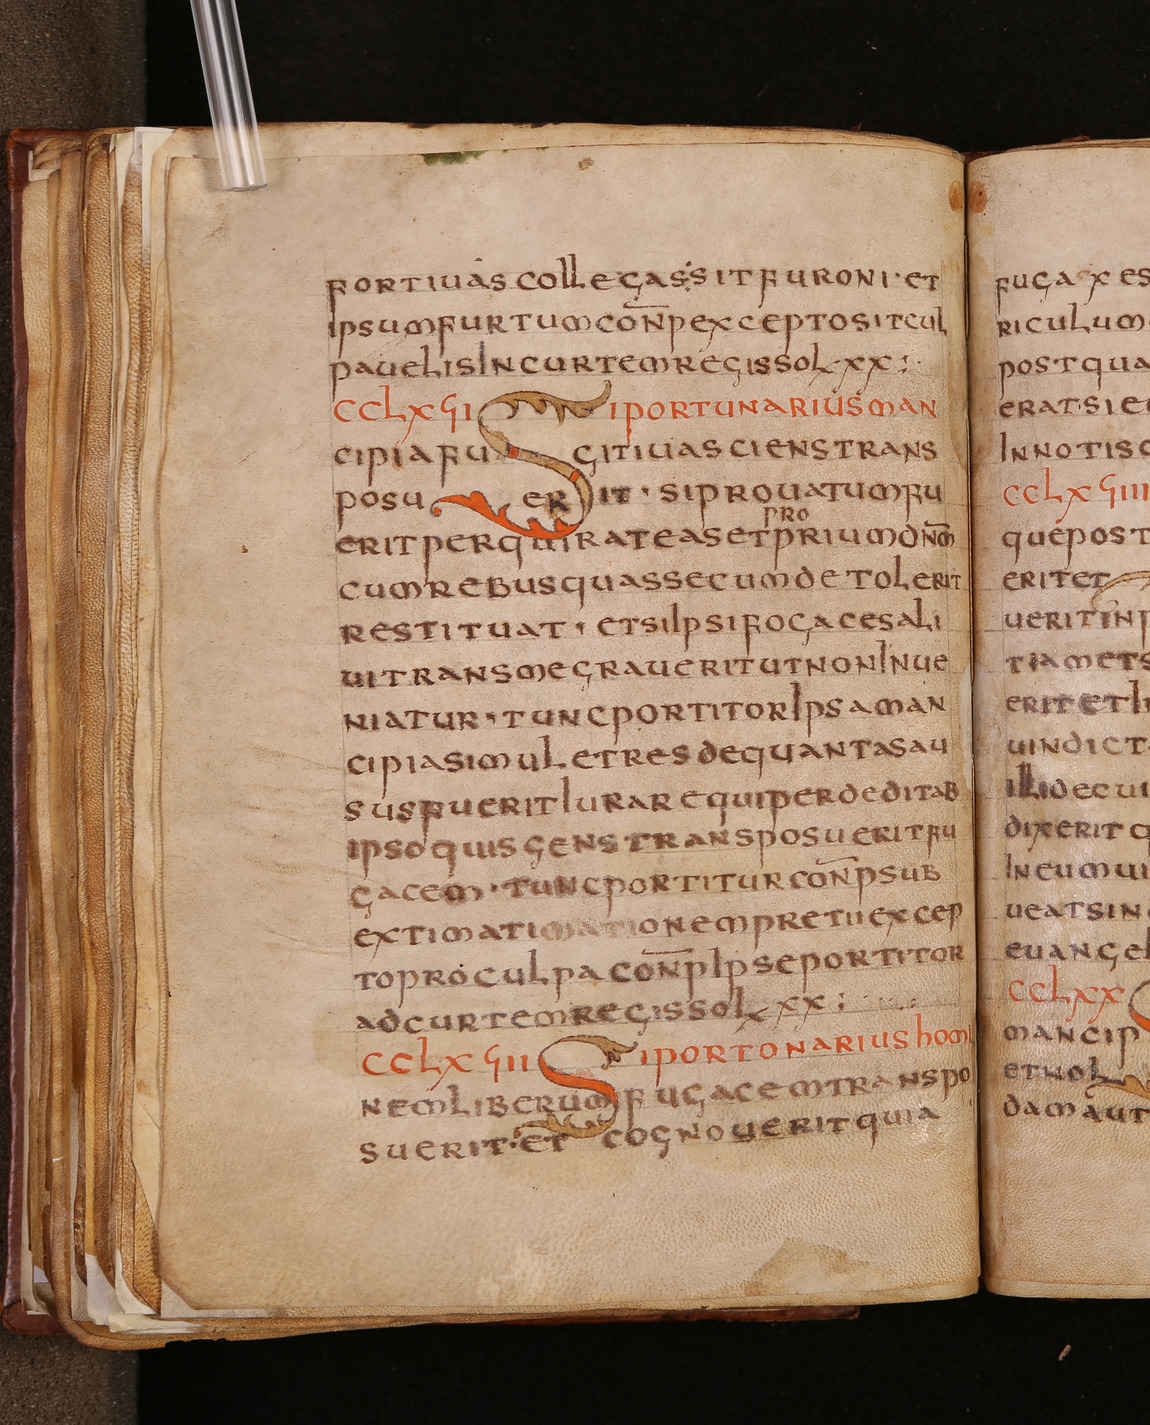 fortiuas collegas sit furoni · et
ipsum furtum con̄p excepto sit cul
pauelis in curtem regis sol · xx :
CCLXϛI Si portunarius man
cipia fu gitiua sciens trans
posu er it · si prouatum fu
pro
erit perquirat eas et priumdn̄m
cum rebus quas secum detolerit
restituat · et si ipsi fogaces ali
ui transmegrauerit ut non inue
niatur · tunc portitor ipsa man
cipia simul et res de quantas au
sus fuerit iurare qui perdedit ab
ipso qui sgens transposuerit fu
gacem · tunc portitur con̄p sub
extimationem pretii excep
to pro culpa con̄p ipse portitor
ad curtem regis sol xx :
CCLXϛII Si portonarius homi
nem liberum fugacem transpo
suerit · et cognouerit quia
fugax es
riculum
postqua
erat si e
Innotisc
CCLXϛIII
que post
erit et
uerit in
tiam ets
erit et
uindict
illi de cui
dixerit q
In eum ui
ueat sin
euangel
CCLXX
mancip
et nol
dam aut